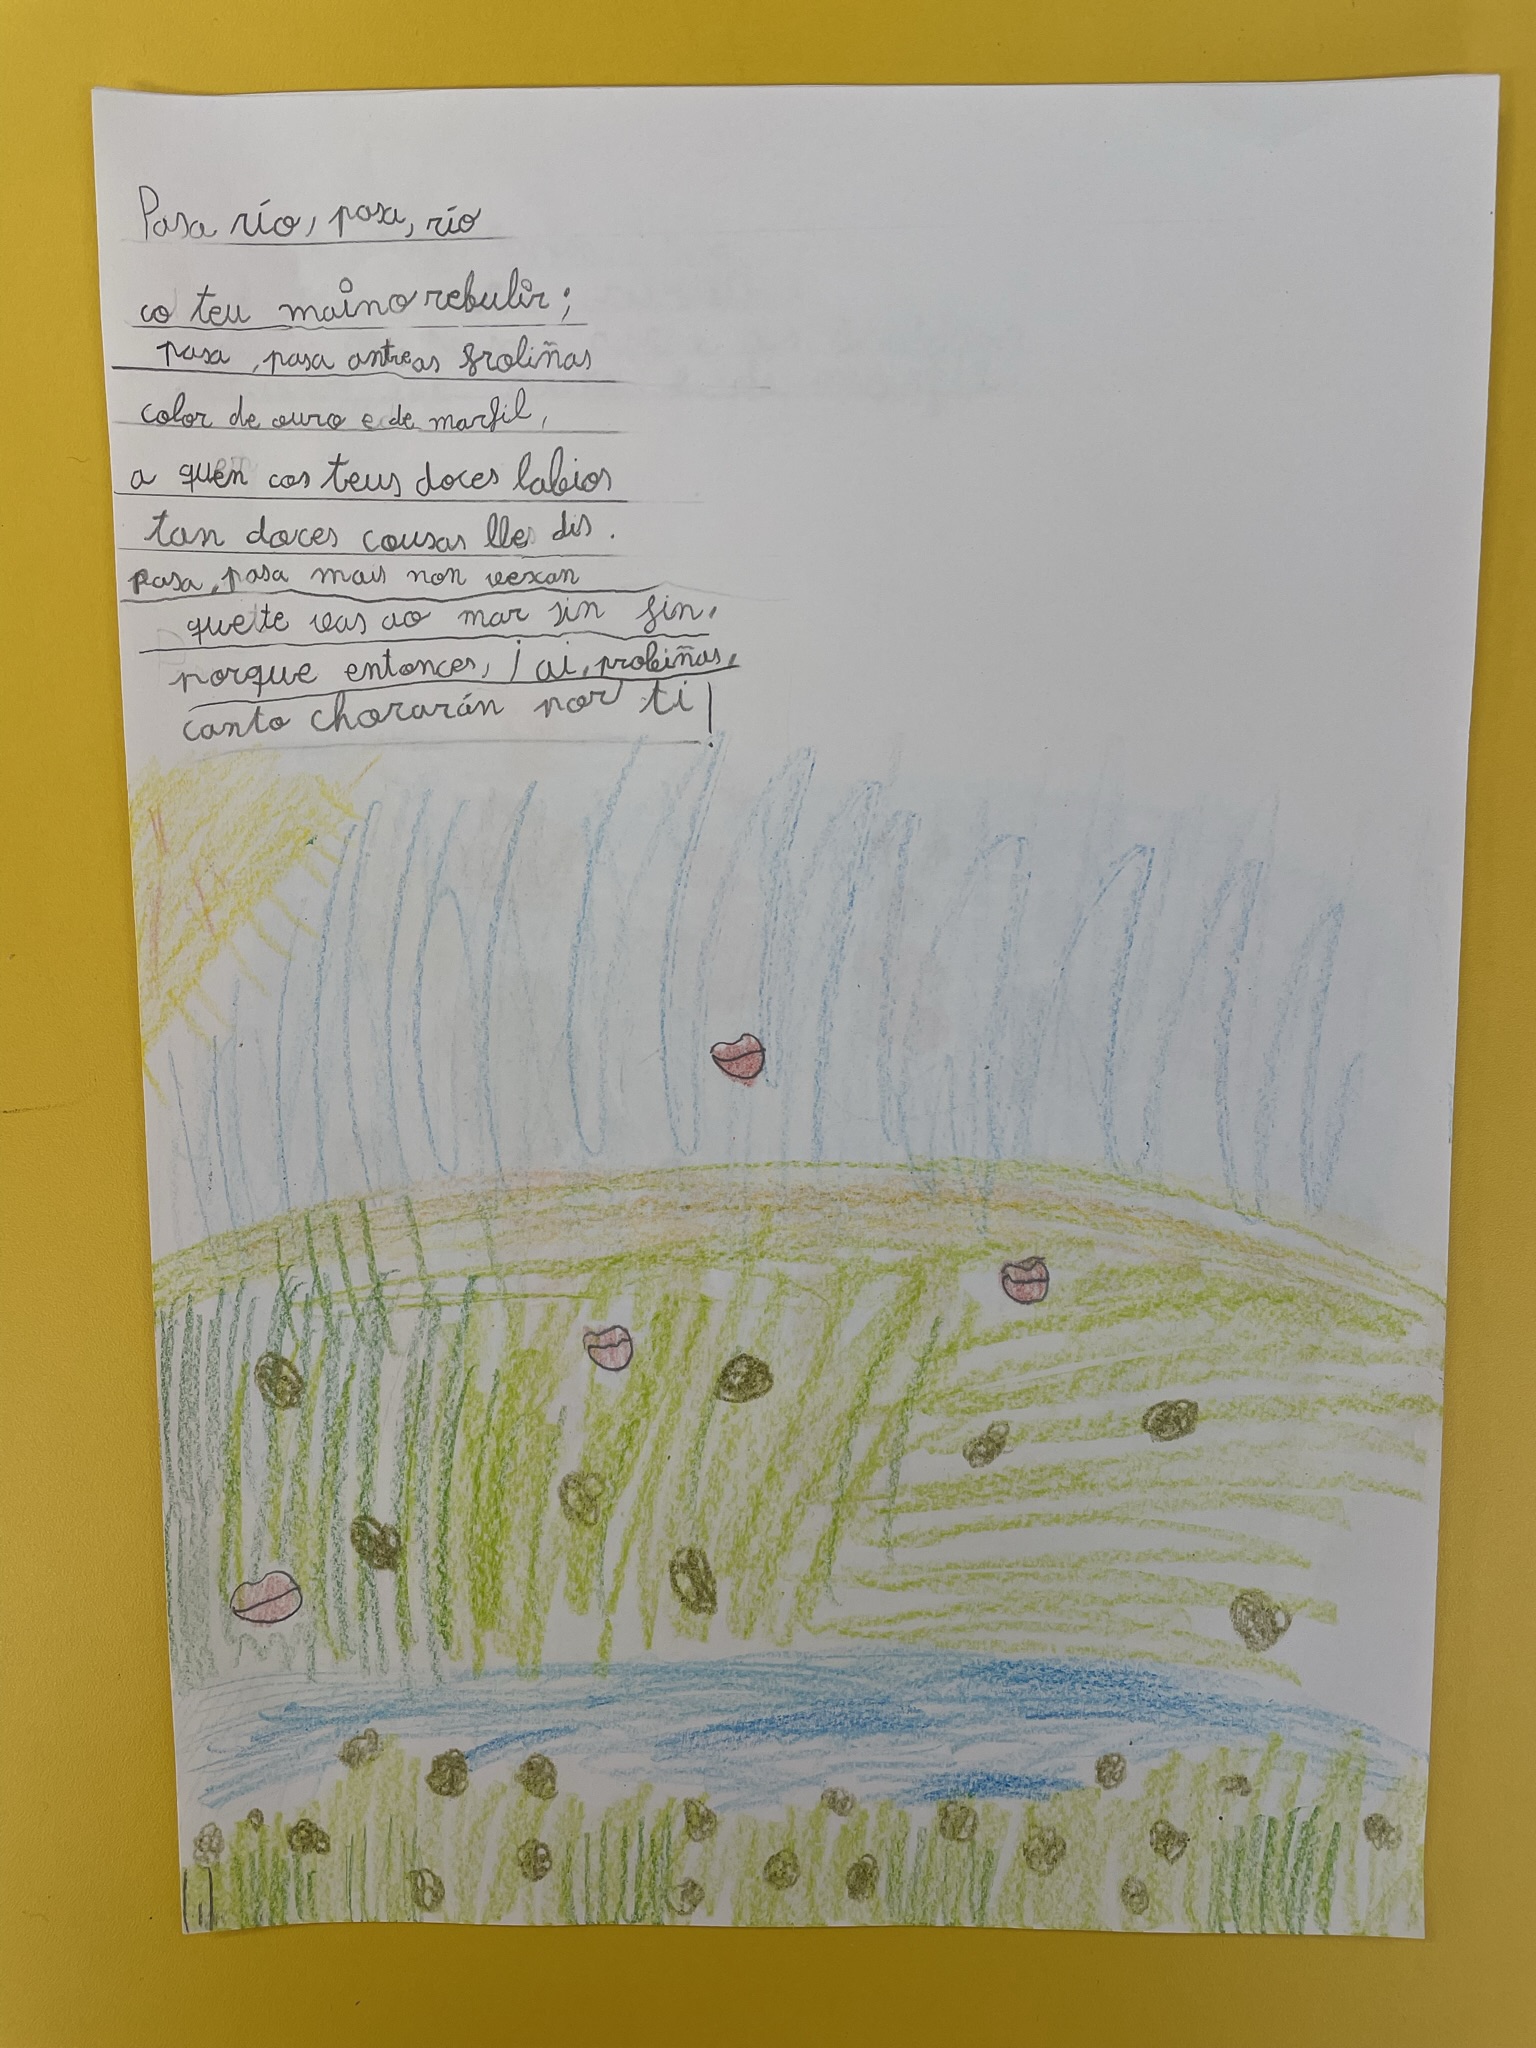 Pasa río, pasa, río
co teu maino rebulir;
pasa, pasa antreas froliñas
color de ouro e de marfil,
a quen cos teus doces labios
tan doces cousas lles dis.
Pasa, pasa mais non vexan
quette vas ao mar sin fin,
porque entonces, ¡ ai, probiñas,
canto chorarán por ti!